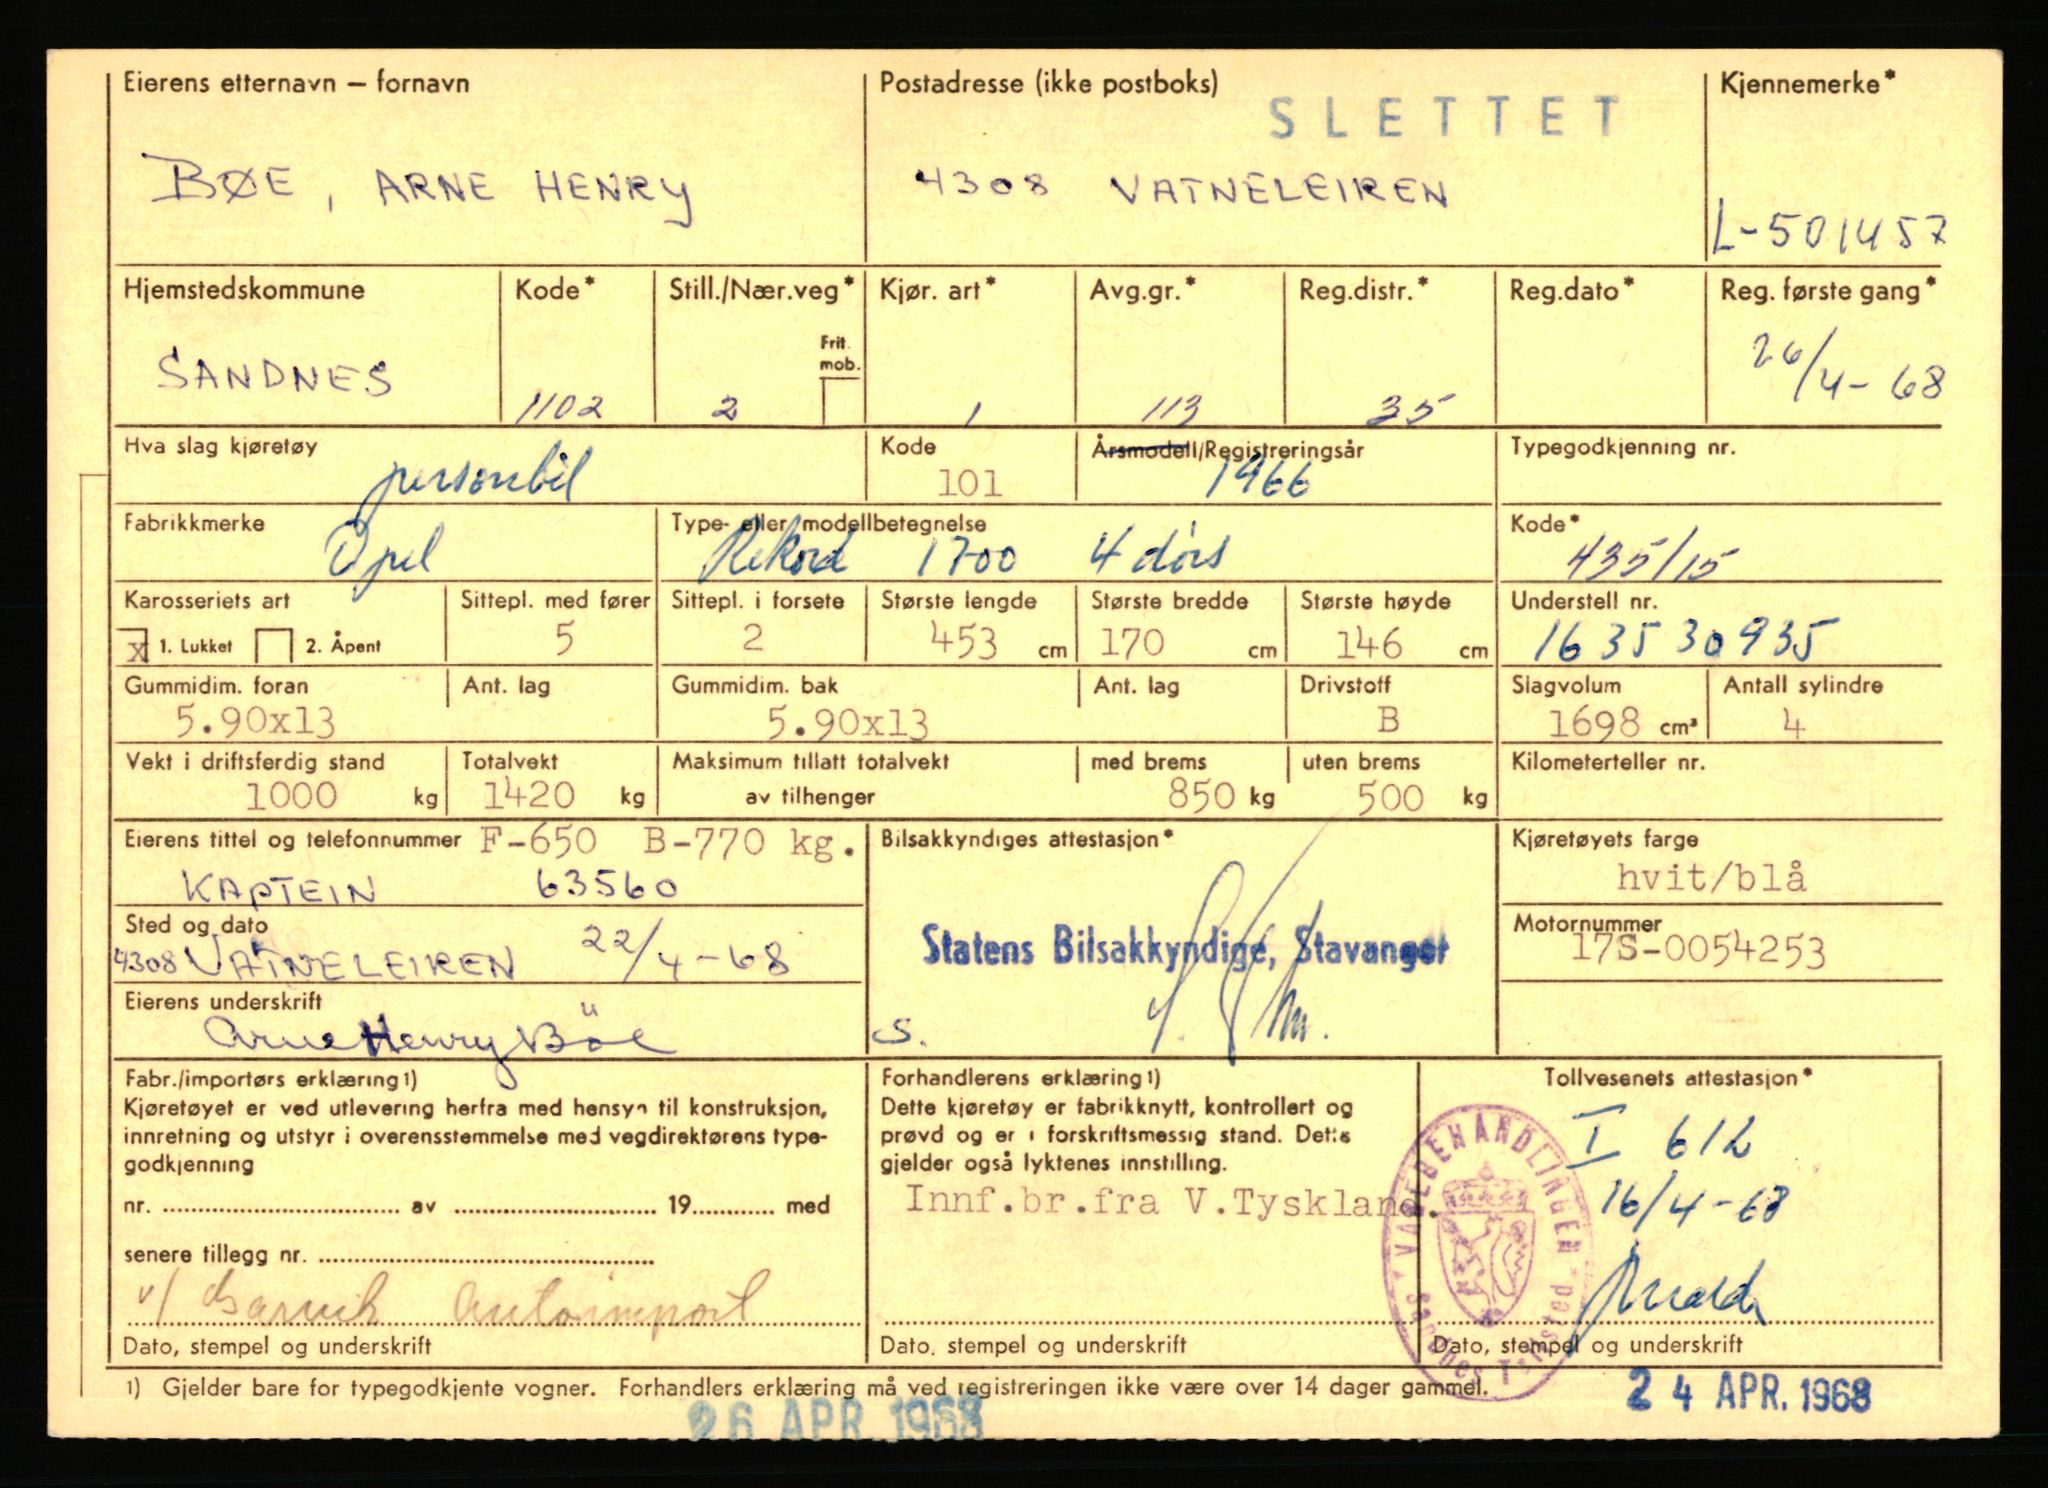 Eierens etternavn – fornavn Postadresse (ikke postboks) Kjennemerke*
SLETTET
BØE, ARNE HENRY 4308 VATNELEIREN L-501457
Hjemstedskommune Kode* Still./Nær.veg* Kjør. art* Avg.gr.* Reg.distr.* Reg.dato* Reg. første gang*
Frit. mob.
SANDNES 1102 2 1 113 35 26/4-68
Hva slag kjøretøy Kode Årsmodell/Registreringsår Typegodkjenning nr.
personbil 101 1966
Fabrikkmerke Type- eller modellbetegnelse Kode*
Opel Rekord 1700 4 dørs 435/15
Karosseriets art Sittepl. med fører Sittepl. i forsete Største lengde Største bredde Største høyde Understell nr.
x 1. Lukket 2. Åpent 5 2 453 cm 170 cm 146 cm 163530935
Gummidim. foran Ant. lag Gummidim. bak Ant. lag Drivstoff Slagvolum Antall sylindre
5.90x13 5.90x13 B 1698 cm³ 4
Vekt i driftsferdig stand Totalvekt Maksimum tillatt totalvekt med brems uten brems Kilometerteller nr.
1000 kg 1420 kg av tilhenger 850 kg 500 kg
Eierens tittel og telefonnummer F-650 B-770 kg. Bilsakkyndiges attestasjon* Kjøretøyets farge
KAPTEIN 63560 hvit/blå
Sted og dato Motornummer
4308 VATNELEIREN 22/4-68 Statens Bilsakkyndige, Stavanger 17S-0054253
Eierens underskrift
Arne Henry Böe S.
Fabr./importørs erklæring 1) Forhandlerens erklæring 1) Tollvesenets attestasjon*
Kjøretøyet er ved utlevering herfra med hensyn til konstruksjon, Dette kjøretøy er fabrikknytt, kontrollert og I 612
innretning og utstyr i overensstemmelse med vegdirektørens type- prøvd og er i forskriftsmessig stand. Dette
godkjenning gjelder også lyktenes innstilling.
Innf.br.fra V.Tyskland. 16/4-68
nr. av 19 med
senere tillegg nr.
VAREBEHANDLINGEN Sandnes Tollsted
v/ Autoimport
Dato, stempel og underskrift Dato, stempel og underskrift Dato, stempel og underskrift
1) Gjelder bare for typegodkjente vogner. Forhandlers erklæring må ved registreringen ikke være over 14 dager gammel.
26 APR. 1968 24 APR. 1968